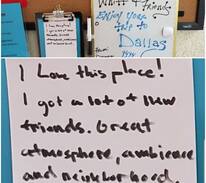 Whitt & friends
Enjoy your
trip to
Dallas
I Love this place!
I got a lot of new
friends. Great
atmosphere, ambience
and neighborhood.